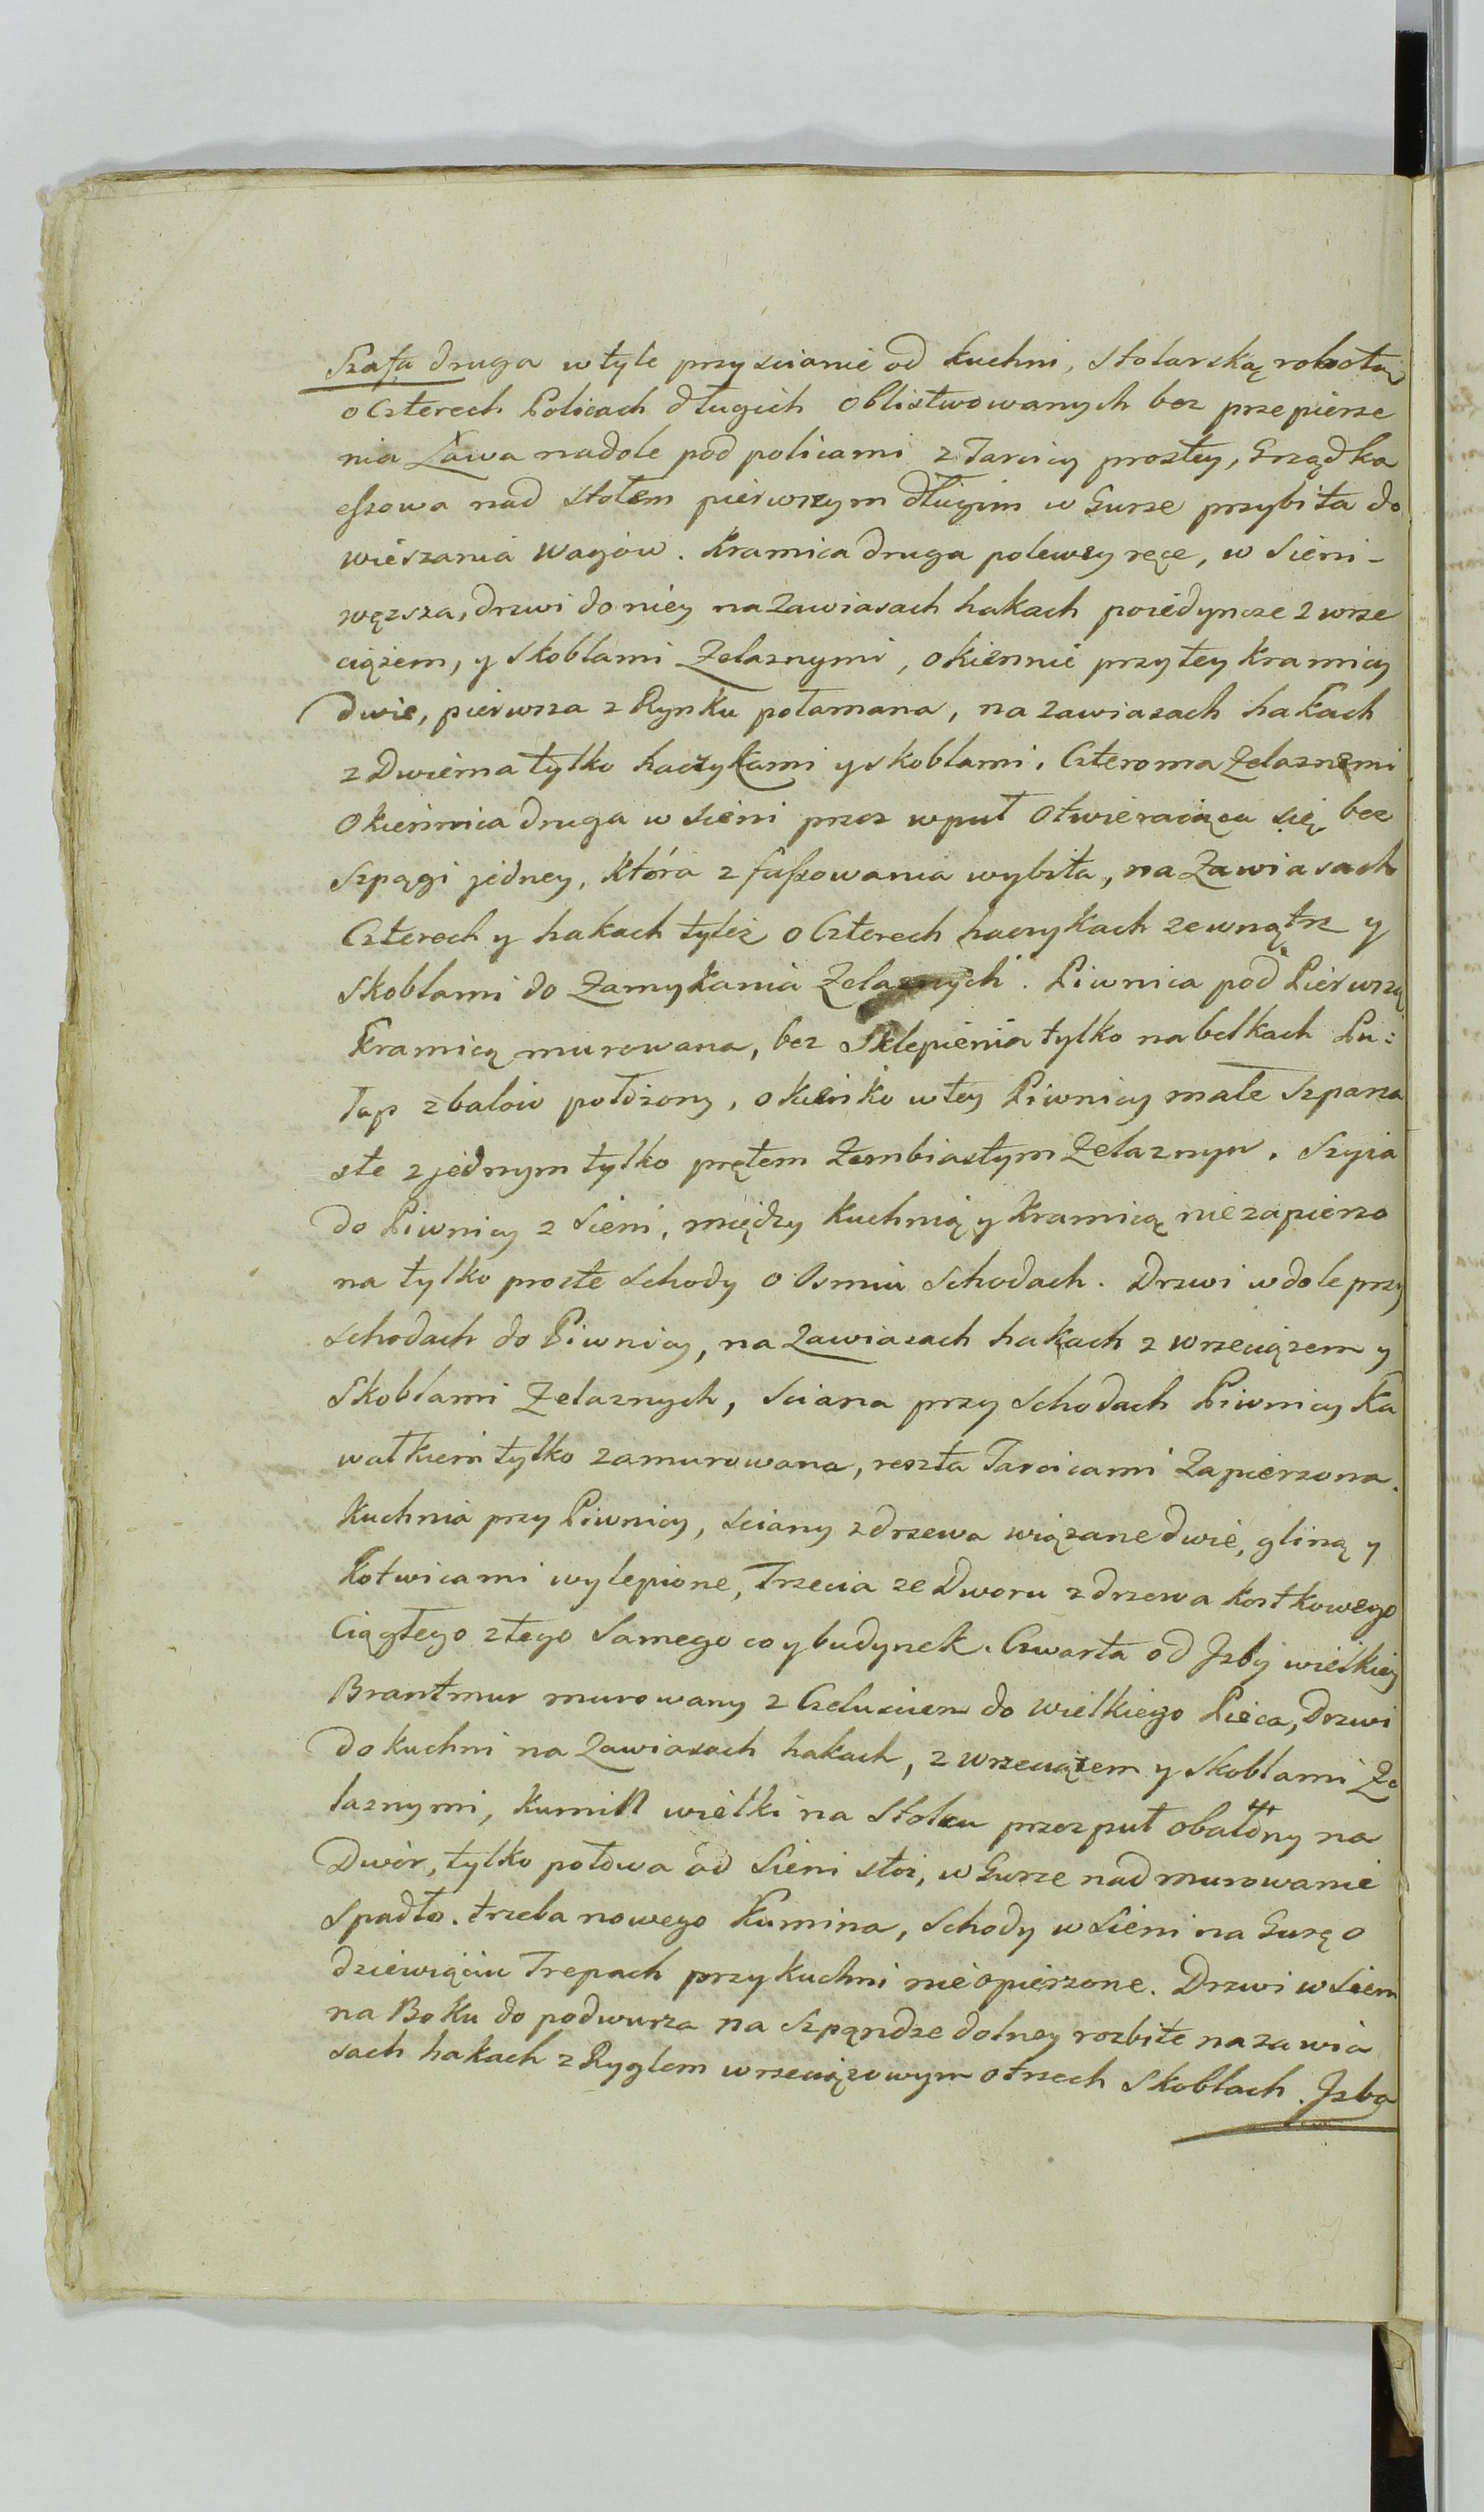 Szafa druga w tyle przy scianie od kuchni, stolarską robotą
o Czterech Policach długich oblistwowanych bez przepierze
nia Ława nadole pod policami z Tarcicy prostey, Grządka
eszowa nad stołem pierwszym długim w Gurze przybita do
wieszania Wagów. Kramica druga polewey ręce, w Sieni-
węzsza, drzwi do niey na zawiasach hakach poiedyncze z wrze
ciążem, y skoblami Żelaznymi, okiennic przy tey Kramicy
dwie, pierwsza z Rynku połamana, na zawiasach hakach
z Dwiema tylko haczykami y skoblami, Czteroma Zelaznemi
Okiennica druga w sieni przez wpuł otwieraiąca się bez
Szpągi jedney, która z fuszowania wybita, na Zawiasach
Czterech y hakach tyleż o Czterech haczykach zewnątrz y
skoblami do Zamykania Żelaznych. Piwnica pod Pierwszą
Kramicą murowana, bez Sklepienia tylko na belkach Pu:
łap z balów połóżony, okienko w tey Piwnicy małe Szpara
ste z jednym tylko prętem Zembiastym Zelaznym. Szyia
do Piwnicy z Sieni, między Kuchnią y Kramicą niezapierzo
na tylko proste Schody o Osmiu Schodach. Drzwi w dole przy
schodach do Piwnicy, na Zawiasach hakach z wrzeciązem y
Skoblami Żelaznych, Sciana przy Schodach Piwnicy Ka
wałkiem tylko zamurowana, reszta Tarcicami Zapierzona.
Kuchnia przy Piwnicy, sciany z drzewa wiązane dwie, gliną y
Kotwicami wylepione, Trzecia ze Dworu z drzewa kostkowego
Ciągłego z tego Samego co y budynek. Czwarta od Jzby wielkiey
Brantmur murowany z Czeluscien do wielkiego Pieca, Drzwi
do kuchni na Zawiasach hakach, z wrzeciązem y Skoblami Że
laznymi, Kumin wielki na Stolcu przez puł obałony na
Dwór, tylko połowa od Sieni stoi, w Gurze nad murowanie
Spadło. trzeba nowego Kumina, Schody w Sieni na Gurę o
dziewiąciu Trepach przy kuchni nieopierzone. Drzwi w Sieni
na Boku do podwurza na Szpądze dolney rozbite na zawia
sach hakach z Ryglem wrzeciązowym o trzech Skoblach. Jzba